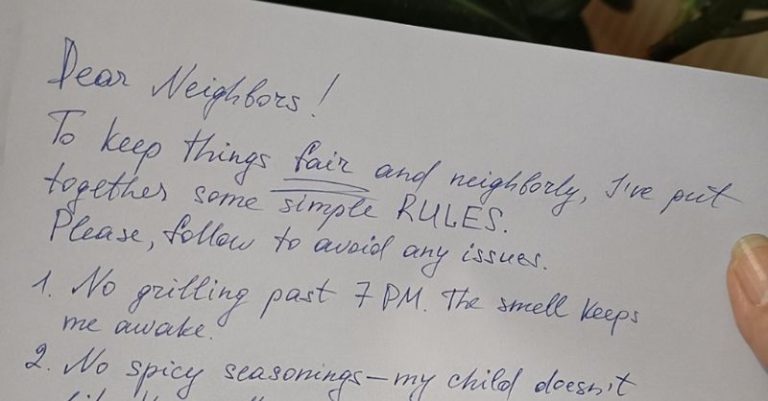 Dear Neighbors!
To keep things fair and neighborly, I've put
together some simple RULES.
Please, follow to avoid any issues.
1. No grilling past 7 PM. The smell keeps
me awake.
2. No spicy seasonings – my child doesn't